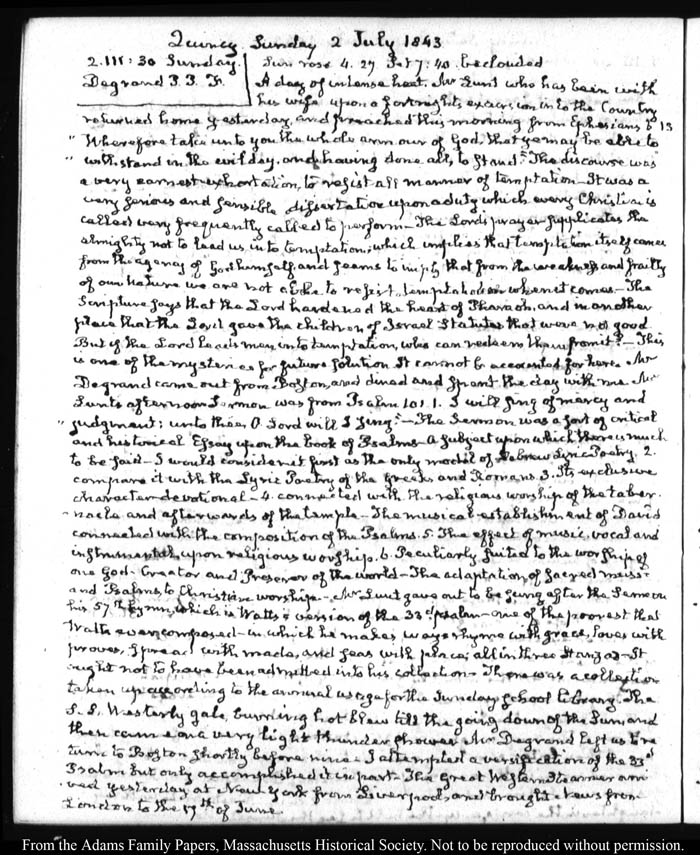 Quincy Sunday 2 July 1843
2. III: 30 Sunday. Sun rose 4. 27 Set 7: 40. beclouded
Degrand P. P. F. A day of intense heat. Mr Lunt who has been with
his wife upon a fortnight's excursion into the Country
returned home yesterday, and preached this morning from Ephesians 6 13
" Wherefore take unto you the whole armour of God, that ye may be able to
" withstand in the evil day, and having done all, to stand." The discourse was
a very earnest exhortation, to resist all manner of temptation— It was a
very serious and sensible dissertation upon a duty which every Christian is
called very frequently called to perform— The Lords prayer supplicates the
almighty not to lead us into temptation; which implies that temptation itself comes
from the agency of God himself and seems to imply that from the weakness and frailty
of our nature we are not able to resist temptation when it comes— The
Scripture says that the Lord hardened the heart of Pharaoh, and in another
place that the Lord gave the children of Israel Statutes that were not good
But if the Lord leads men into temptation, who can redeem them from it?— This
is one of the mysteries for future solution It cannot be accounted for here. Mr
Degrand came out from Boston, and dined and spent the day with me. Mr
Lunt's afternoon Sermon was from Psalm 101. 1. I will sing of mercy and
" judgment: unto thee, O Lord will I sing"— The Sermon was a sort of critical
and historical Essay upon the book of Psalms— A subject upon which there is much
to be said— I would consider it first as the only model of Hebrew Lyric Poetry. 2.
compare it with the Lyric Poetry of the Greeks and Romans 3. Its exclusive
character devotional— 4. connected with the religious worship of the taber-
nacle and afterwards of the temple— The musical establishment of David
connected with the composition of the Psalms. 5. The effect of music, vocal and
instrumental, upon religious worship. 6. Peculiarly suited to the worship of
one God— Creator and Preserver of the world— The adaptation of sacred music
and Psalms to Christian worship— Mr Lunt gave out to be sung after the Sermon
his 57th hymn, which is Watts's version of the 23d psalm— one of the poorest that
Watts ever composed— in which he makes ways rhyme with grace, loves with
proves, spread with made, and seas with place; all in three Stanzas— It
ought not to have been admitted into his collection— There was a collection
taken up according to the annual usage for the Sunday School library. The
S. S. Westerly gale, burning hot blew till the going down of the Sun, and
then came on a very light thunder shower Mr Degrand left us to re
turn to Boston shortly before nine— I attempted a versification of the 23d
Psalm but only accomplished it in part— The Great Western Steamer arri
ved yesterday at New York from Liverpool, and brought News from
London to the 17th of June
From the Adams Family Papers, Massachusetts Historical Society. Not to be reproduced without permission.